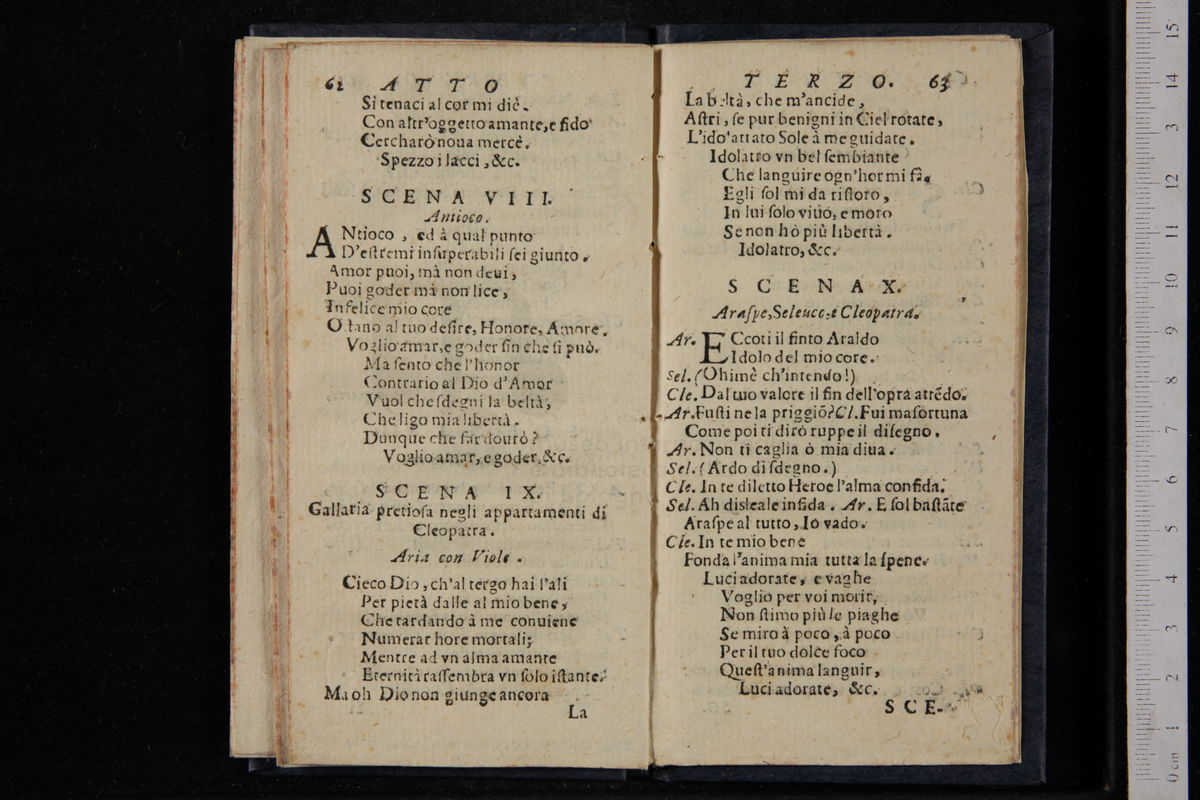 62 ATTO
Si tenaci al cor mi diè.
Con altr'oggetto amante, e fido
Cercharò noua mercè.
Spezzo i lacci, &c.
SCENA VIII.
Antioco.
ANtioco, ed à qual punto
D'estremi insuperabili sei giunto.
Amor puoi, mà non deui,
Puoi goder mà non lice,
Infelice mio core
Ostano al tuo desire, Honore, Amore.
Voglio amar, e goder sin che si può.
Ma sento che l'honor
Contrario al Dio d'Amor
Vuol che sdegni la beltà,
Che ligo mia libertà.
Dunque che far dourò?
Voglio amar, e goder, &c.
SCENA IX.
Gallaria pretiosa negli appartamenti di
Cleopatra.
Aria con Viole.
Cieco Dio, ch'al tergo hai l'ali
Per pietà dalle al mio bene,
Che tardando à me conuiene
Numerar hore mortali;
Mentre ad vn alma amante
Eternità rassembra vn solo istante.
Ma oh Dio non giunge ancora
La
TERZO. 63
La beltà, che m'ancide,
Astri, se pur benigni in Ciel rotate,
L'idolatrato Sole à me guidate.
Idolatro vn bel sembiante
Che languire ogn'hor mi fà.
Egli sol mi da ristoro,
In lui solo viuo, e moro
Se non hò più libertà.
Idolatro, &c.
SCENA X.
Araspe, Seleuco, e Cleopatra.
Ar. ECcoti il finto Araldo
Idolo del mio core.
Sel. (Ohimè ch'intendo!)
Cle. Dal tuo valore il fin dell'opra attẽdo.
Ar. Fusti ne la priggiõ? Cl. Fui ma fortuna
Come poi ti dirò ruppe il disegno.
Ar. Non ti caglia ò mia diua.
Sel. (Ardo di sdegno.)
Cle. In te diletto Heroe l'alma confida.
Sel. Ah disleale infida. Ar. E sol bastãte
Araspe al tutto, Io vado.
Cle. In te mio bene
Fonda l'anima mia tutta la spene.
Luci adorate, e vaghe
Voglio per voi morir,
Non stimo più le piaghe
Se miro à poco, à poco
Per il tuo dolce foco
Quest'anima languir,
Luci adorate, &c.
SCE-
0 cm 1 2 3 4 5 6 7 8 9 10 11 12 13 14 15